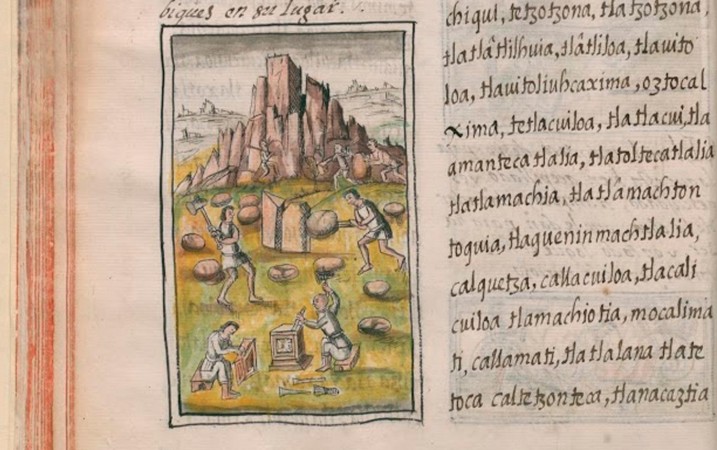 biques en su lugar.
chiqui, tetzotzona, tlatzotzona,
tlatlâtlilhuia, tlâtliloa, tlauito
loa, tlauitoliuhcaxima, oztocal
xima, tetlacuiloa, tlatlacui, tla
amantecatlalia, tlatoltecatlalia
tlatlamachia, tlatlâmachton
toquia, tlaqueninmachtlalia,
calquetza, callacuiloa, tlacali
cuiloa tlamachiotia, mocalima
ti, callamati, tlatlalana tlate
toca caltetzonteca, tlanacaztia